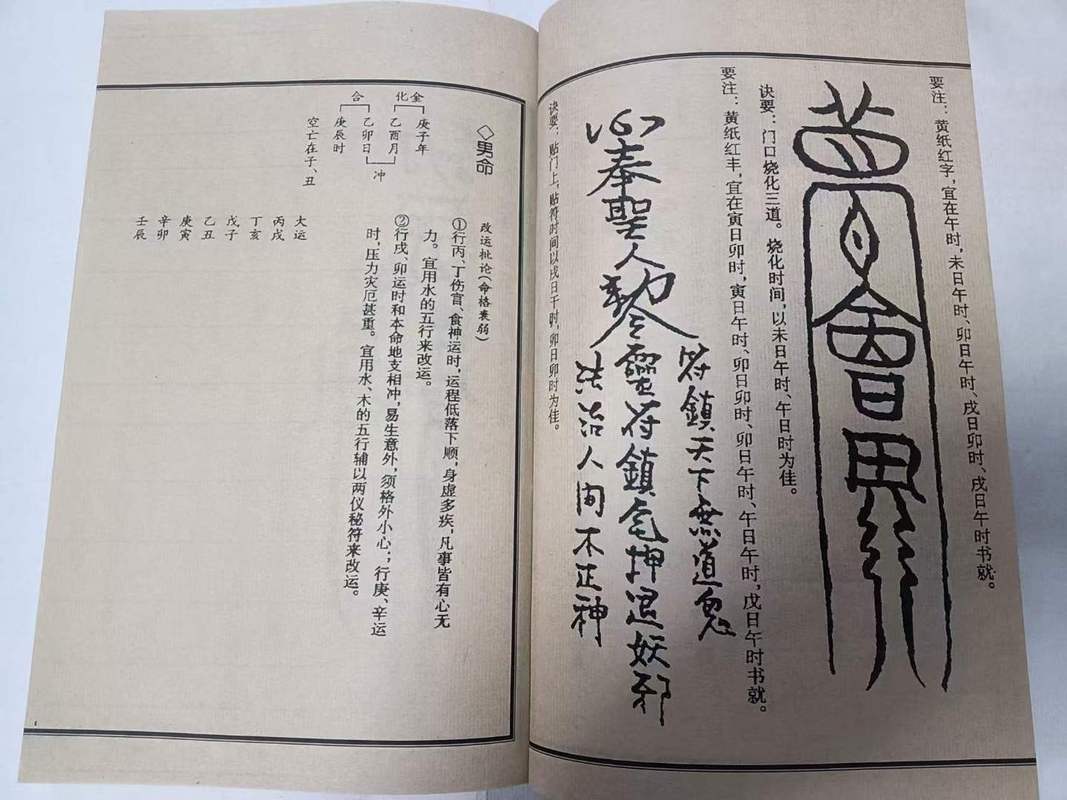 要注：黄纸红字，宜在午时，未日午时、卯日午时、戌日卯时、戌日午时书就。
诀要：门口烧化三道。烧化时间，以未日午时、午日时为佳。
要注：黄纸红丰，宜在寅日卯时，寅日午时、卯日卯时、卯日午时、午日午时，戊日午时书就。
符鎮天下無道鬼
心奉聖人勅令靈符鎮宅押退妖邪
法治人间不正神
诀要：贴门上，贴符时间以戌日干时，卯日卯时为佳。
◇男命
化金
合
庚子年
乙酉月
冲
乙卯日
庚辰时
空亡在子、丑
大运
丙戌
丁亥
戊子
乙丑
庚寅
辛卯
壬辰
改运批论（命格衰弱）
①行丙、丁伤官、食神运时，运程低落下顺，身虚多疾，凡事皆有心无
力。宜用水的五行来改运。
②行戌、卯运时和本命地支相冲，易生意外，须格外小心；行庚、辛运
时，压力灾厄甚重。宜用水、木的五行辅以两仪秘符来改运。